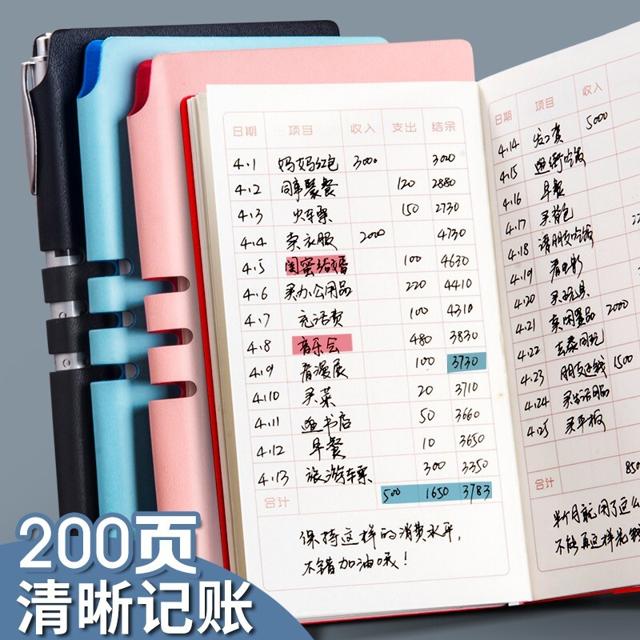 日期 项目 收入 支出 结余
4.1 妈妈红包 3000 3000
4.2 同事聚餐 120 2880
4.3 火车票 150 2730
4.4 卖衣服 2000 4730
4.5 闺蜜结婚 100 4630
4.6 买办公用品 220 4410
4.7 充话费 100 4310
4.8 音乐会 480 3830
4.9 看漫展 100 3730
4.10 买菜 20 3710
4.11 逛书店 50 3660
4.12 早餐 10 3650
4.13 旅游车票 300 3350
合计 500 1650 3783
保持这样的消费水平,
不错加油哦!
日期 项目 收入
4.14 发工资 5000
4.15 逛街吃饭
4.16 早餐
4.17 买背包
4.18 请朋友吃饭
4.19 看电影
4.20 买玩具
4.21 卖闲置品 2000
4.22 去泰国玩
4.23 朋友还钱 1500
4.24 买生活用品
4.25 买平板
合计 850
半月就用了这么
不能再这样花钱
200页
清晰记账